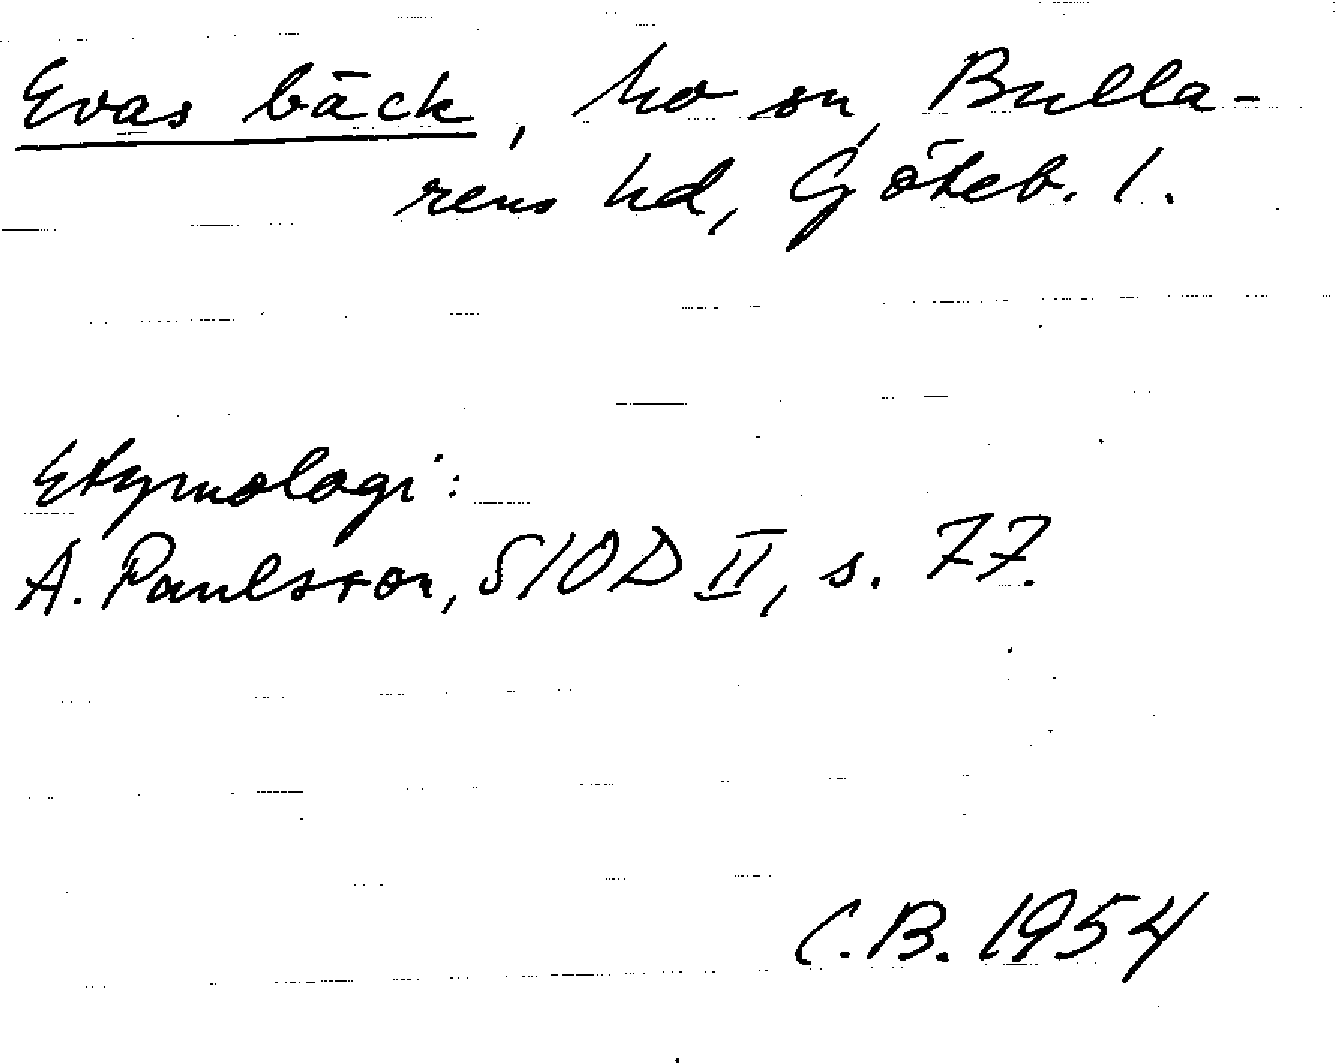 Evas bäck, ho sn, Bulla-
rens hd, Göteb. l.
Etymologi:
A. Paulsson, SIOD II, s. 77.
C.B. 1954